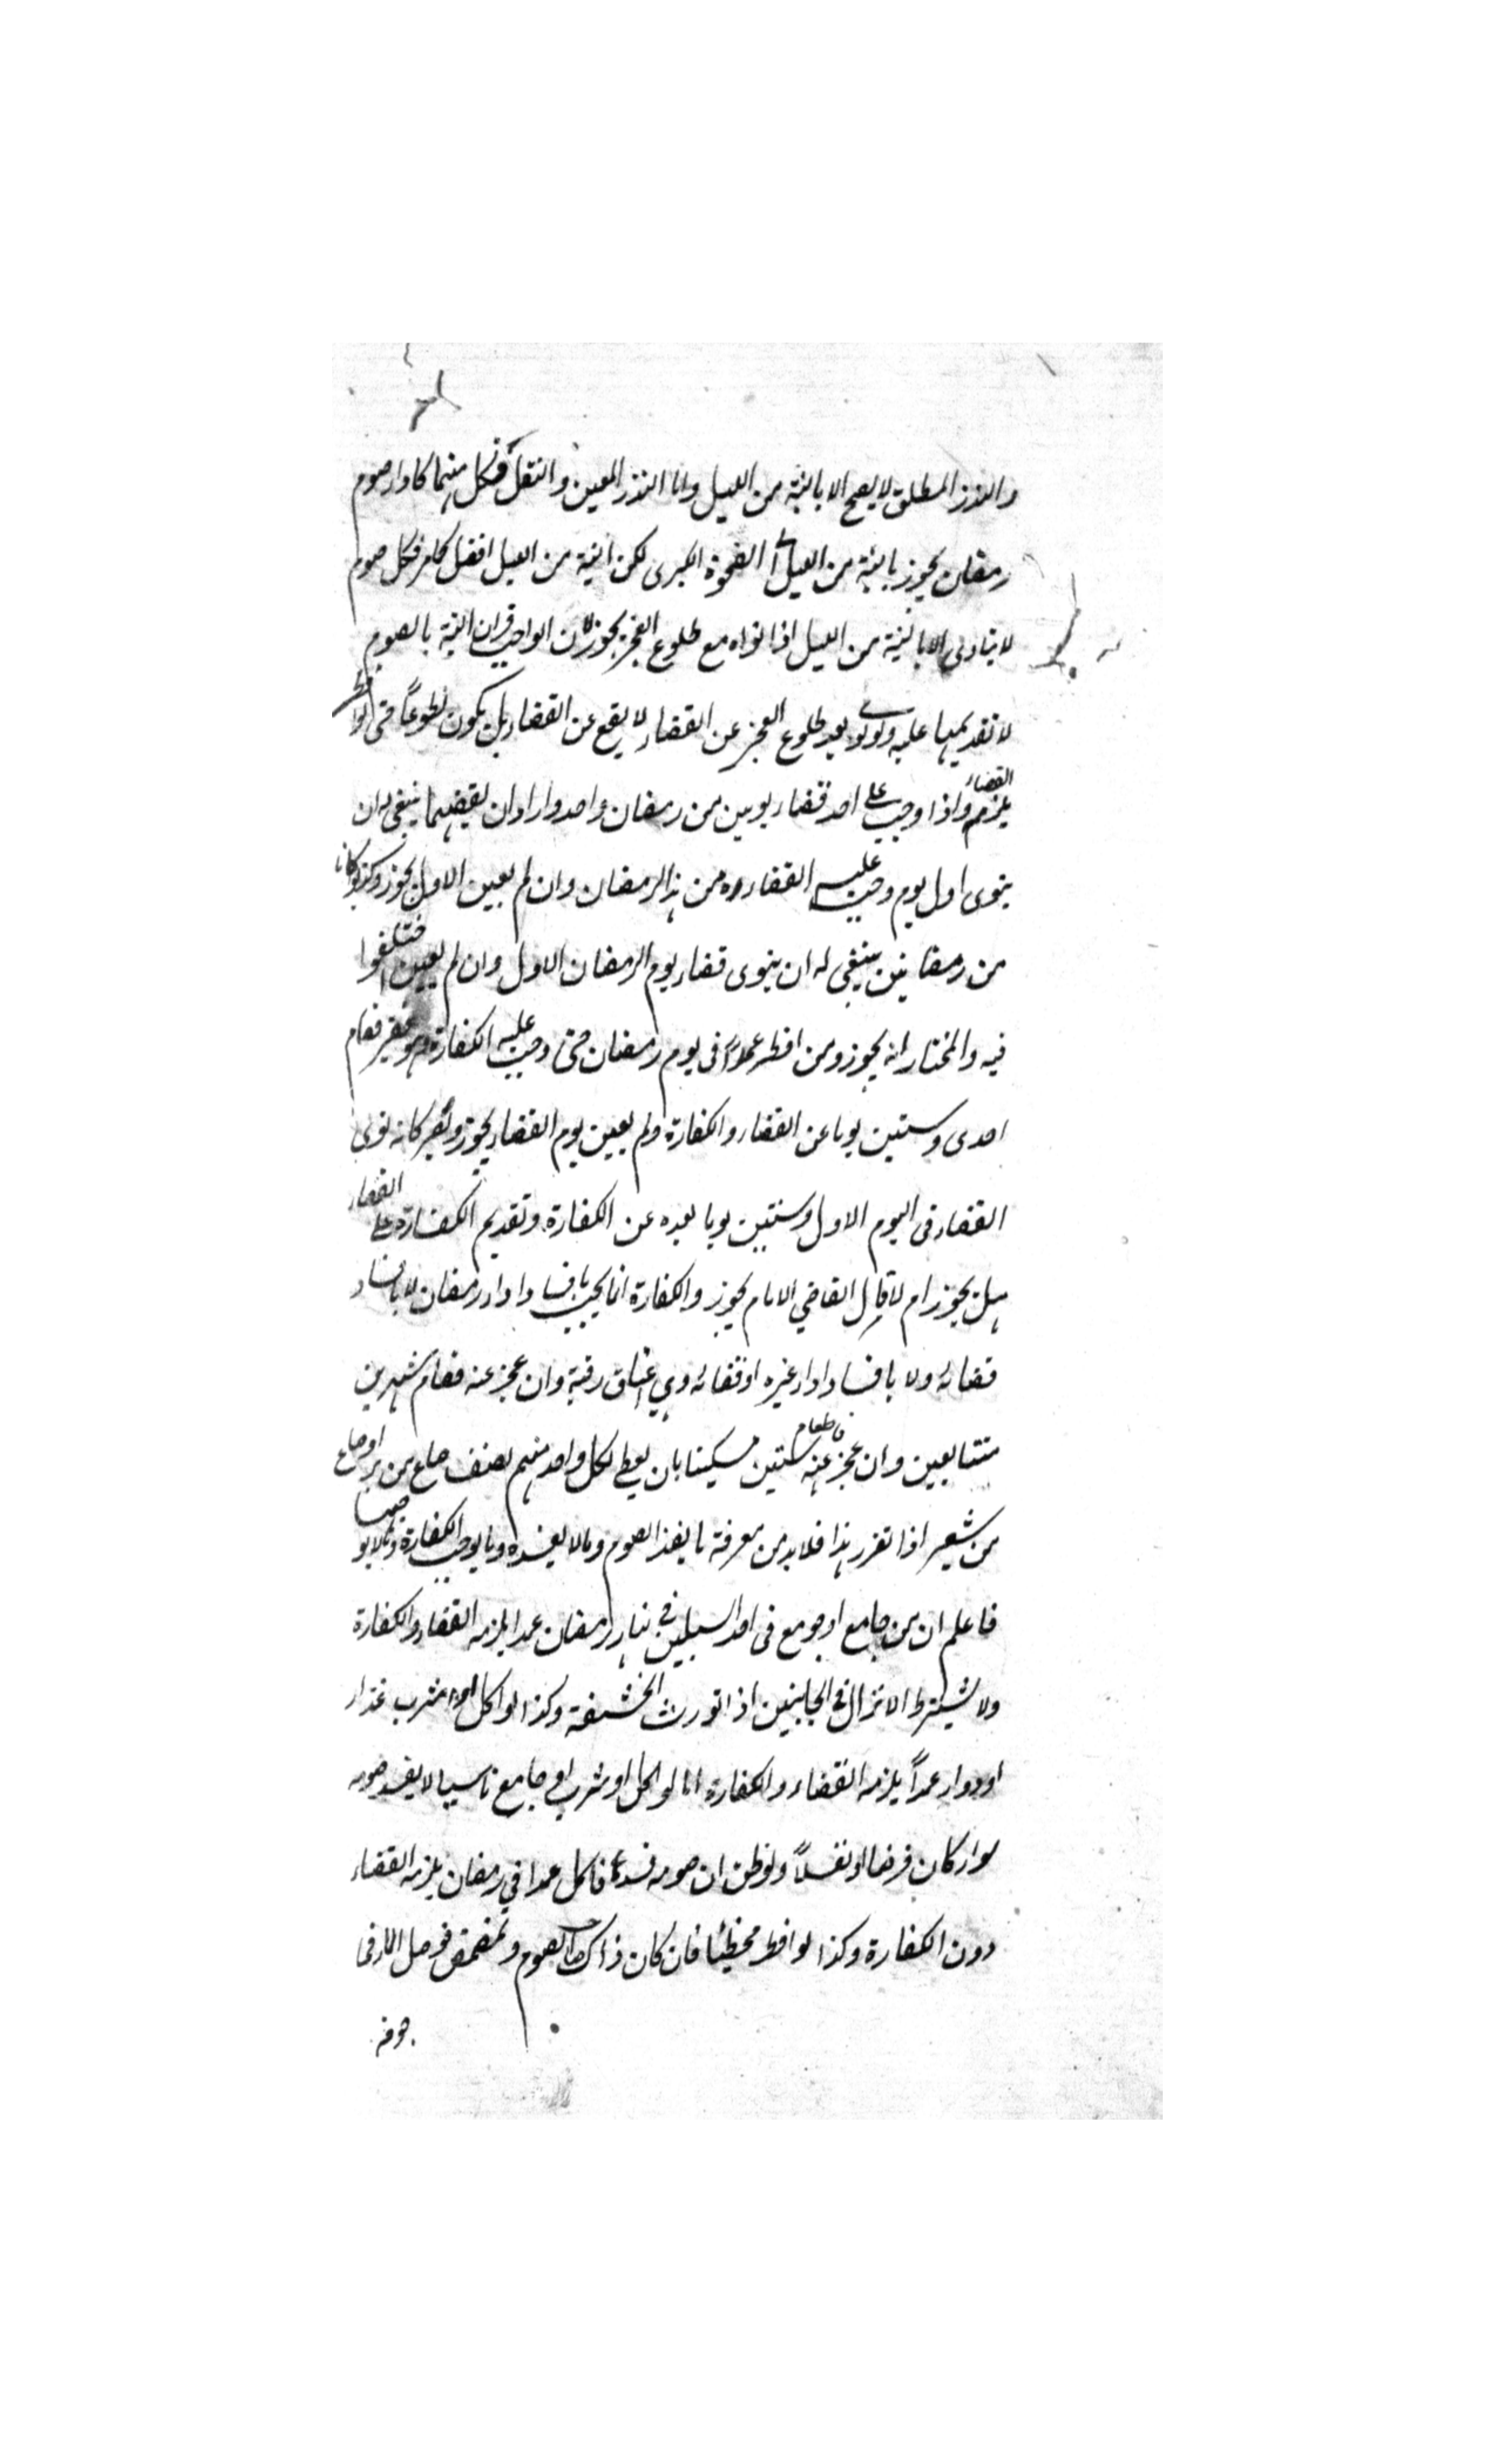 والنذر المطلق لا يصح الا بالنية من الليل واما النذر المعين والنفل فكل منهما كاداء صوم
رمضان يجوز بالنية من الليل الى الضحوة الكبرى لكن النية من الليل افضل كامر فكل صوم
لا يتادى الا بالنية من الليل اذا نواه مع طلوع الفجر يجوز لان الواجب قران النية بالصوم
لا تقديمها عليه ولو نوى بعد طلوع الفجر عن القضاء لا يقع عن القضاء بل يكون تطوعاً حتى لو افطر
يلزمه القضاء واذا وجب على احد قضاء يومين من رمضان واحد واراد ان يقضيهما ينبغي له ان
ينوى اول يوم وجب عليه القضاءه من هذا الرمضان وان لم يعين الاول يجوز وكذا لو كانا
من رمضانين ينبغي له ان ينوى قضاء يوم الرمضان الاول وان لم يعين اختلفوا
فيه والمختار انه يجوز ومن افطر عمداً في يوم رمضان حتى وجب عليه الكفارة وهو فقير فصام
احدى وستين يوما عن القضاء والكفارة ولم يعين يوم القضاء يجوز ويصير كانه نوى
القضاء في اليوم الاول وستين يوما بعده عن الكفارة وتقديم الكفارة على القضاء
هل يجوز ام لا قال القاضي الامام يجوز والكفارة انما يجب بافساد اداء رمضان لا بافساد
قضائه ولا بافساد اداء غيره او قضائه وهي اعتاق رقبة وان عجز عنه فصام شهرين
متتابعين وان عجز عنه فاطعام ستين مسكينا بان يعطى لكل واحد منهم نصف صاع من بر او صاع
من شعير اذا تقرر هذا فلا بد من معرفة ما يفسد الصوم وما لا يفسده وما يوجب الكفارة وما لا يوجبها
فاعلم ان من جامع او جومع في احد السبيلين في نهار رمضان عمدا يلزمه القضاء والكفارة
ولا يشترط الانزال في الجانبين اذا تورث الحشفة وكذا لو اكل او شرب غذاء
او دواء عمداً يلزمه القضاء والكفارة اما لو اكل او شرب او جامع ناسيا لا يفسد صومه
سواء كان فرضا او نفلاً ولو ظن ان صومه فسد فاكل عمدا في رمضان يلزمه القضاء
دون الكفارة وكذا لو افطر مخطئا فان كان ذاكرا للصوم وتمضمض فوصل الماء في
جوفه